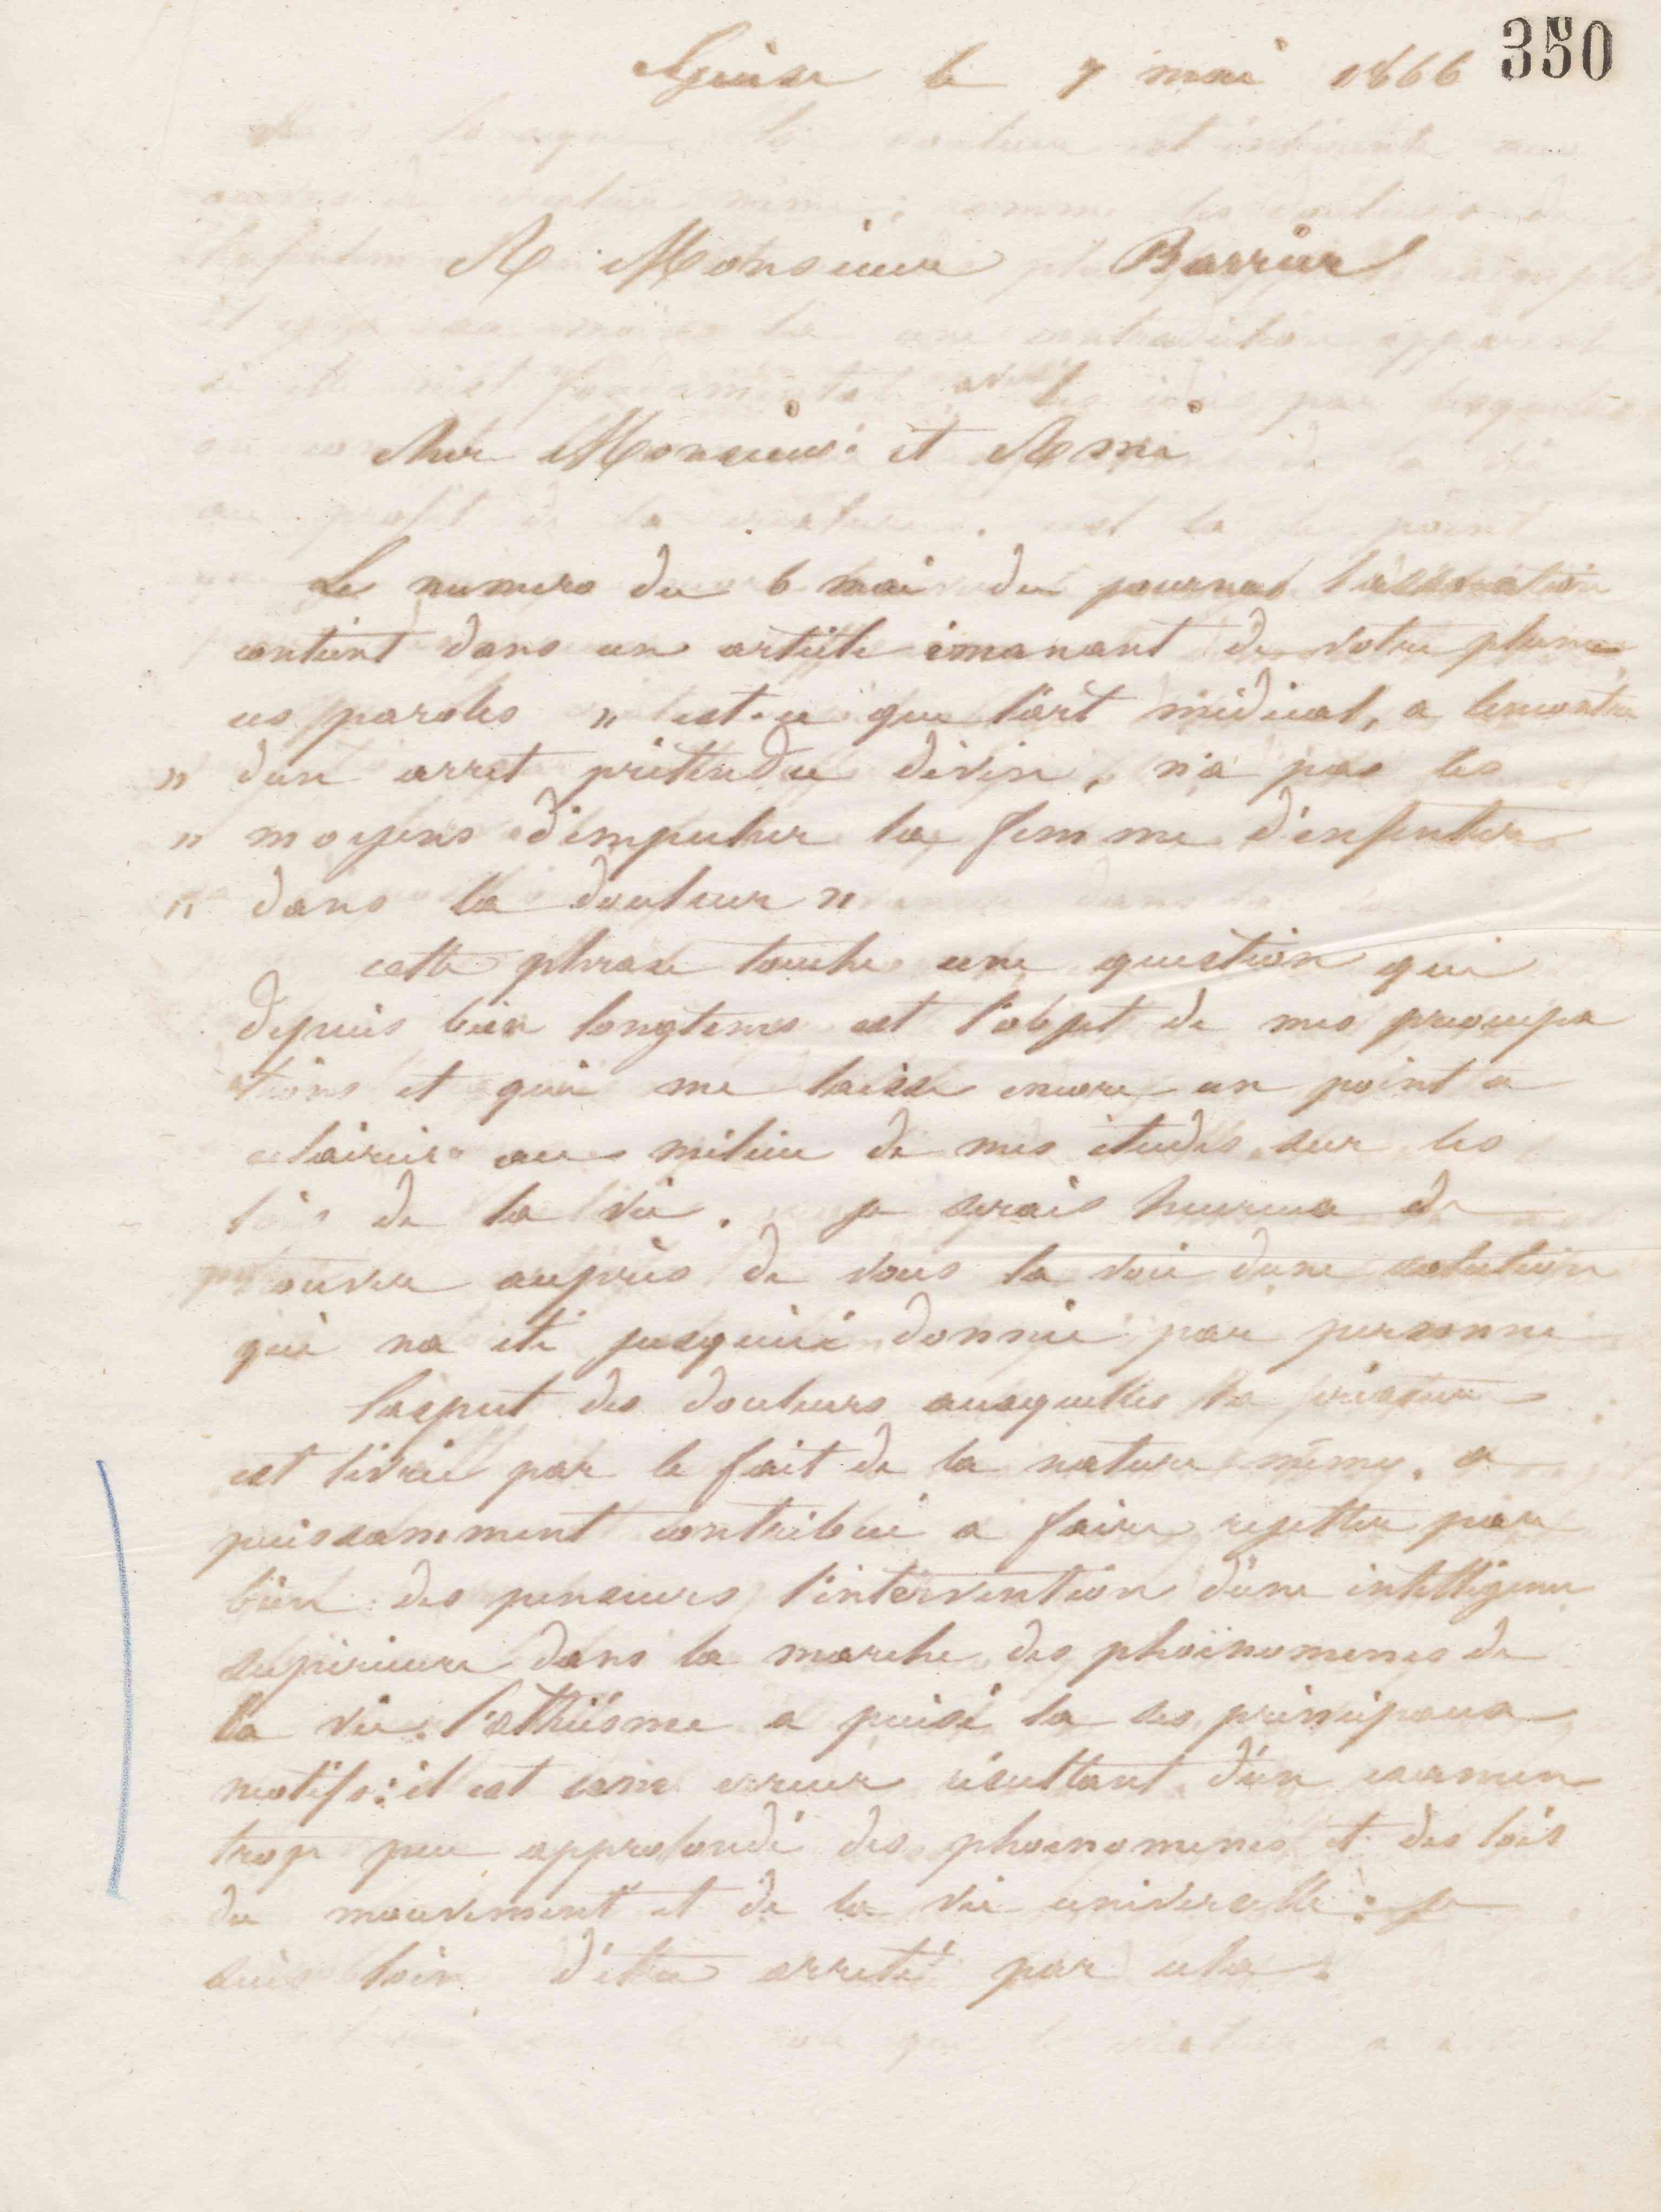 350
Guise le 7 mai 1866
A Monsieur Barrier
cher Monsieur et Ami
Le numero du 6 mai du journal l'association
contient dans un article émanant de votre plume
ces paroles " est-ce que l'art médical, a lencontre
" dun arret prétendu divin, n'a pas les
" moyens d'empecher la femme d'enfenter
" dans la douleur "
cette phrase touche une question qui
depuis bien longtems est l'objet de mes preoccupa
tions et qui me laisse encore un point a
eclaircir au milieu de mes études sur les
lois de la vie. je serais heureux de
trouver auprès de vous la voie dune solution
qui na été jusquici donnée par personne
laspect des douleurs auxquelles la créature
est livrée par le fait de la nature même, a
puissamment contribué a faire rejetter par
bien des penseurs l'intervention d'une intelligence
supérieure dans la marche des phoenomenes de
la vie. l'athéisme a puisé la ses principaux
motifs: il est une erreur résultant d'un examen
trop peu approfondi des phoenomenes et des lois
du mouvement et de la vie universelle: je
suis loin d'être arreté par cela.